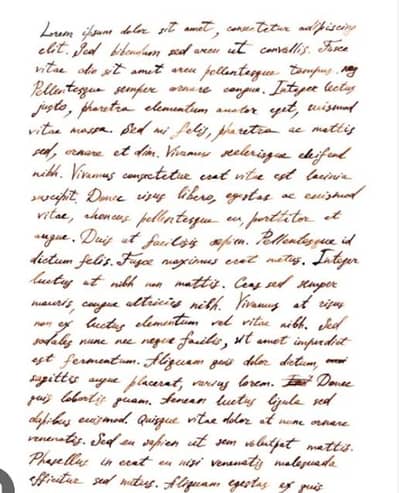 Lorem ipsum dolor sit amet, consectetur adipiscing
elit. Sed bibendum sed arcu ut convallis. Fusce
vitae odio sit amet arcu pellentesque tempus.
Pellentesque semper ornare congue. Integer lectus
justo, pharetra elementum auctor eget, euismod
vitae massa. Sed mi felis, pharetra ac mattis
sed, ornare et dim. Vivamus scelerisque eleifend
nibh. Vivamus consectetur erat vitae est lacinia
suscipit. Donec risus libero, egestas ac euismod
vitae, rhoncus pellentesque eu, porttitor et
augue. Duis at facilisis sapien. Pellentesque id
dictum felis. Fusce maximus erat metus. Integer
luctus at nibh non mattis. Cras sed semper
mauris, congue ultricies nibh. Vivamus at risus
non ex luctus elementum vel vitae nibh. Sed
sodales nunc nec neque facilis, sit amet imperdiet
est fermentum. Aliquam quis dolor dictum,
sagittis augue placerat, varius lorem. Donec
quis lobortis quam. Aenean luctus ligula sed
dapibus euismod. Quisque vitae dolor at nunc ornare
venenatis. Sed eu sapien ut sem volutpat mattis.
Phasellus in erat eu nisi venenatis malesuada
efficitur sed metus. Aliquam egestas ex quis